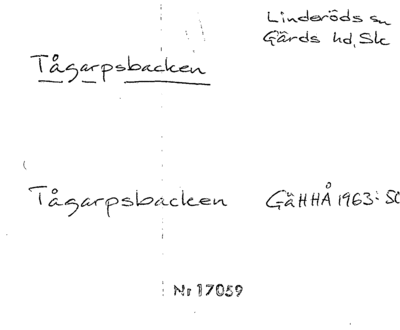 Linderöds sn
Gärds hd, Sk
Tågarpsbacken
Tågarpsbacken GäHHÅ 1963: 50
Nr 17059